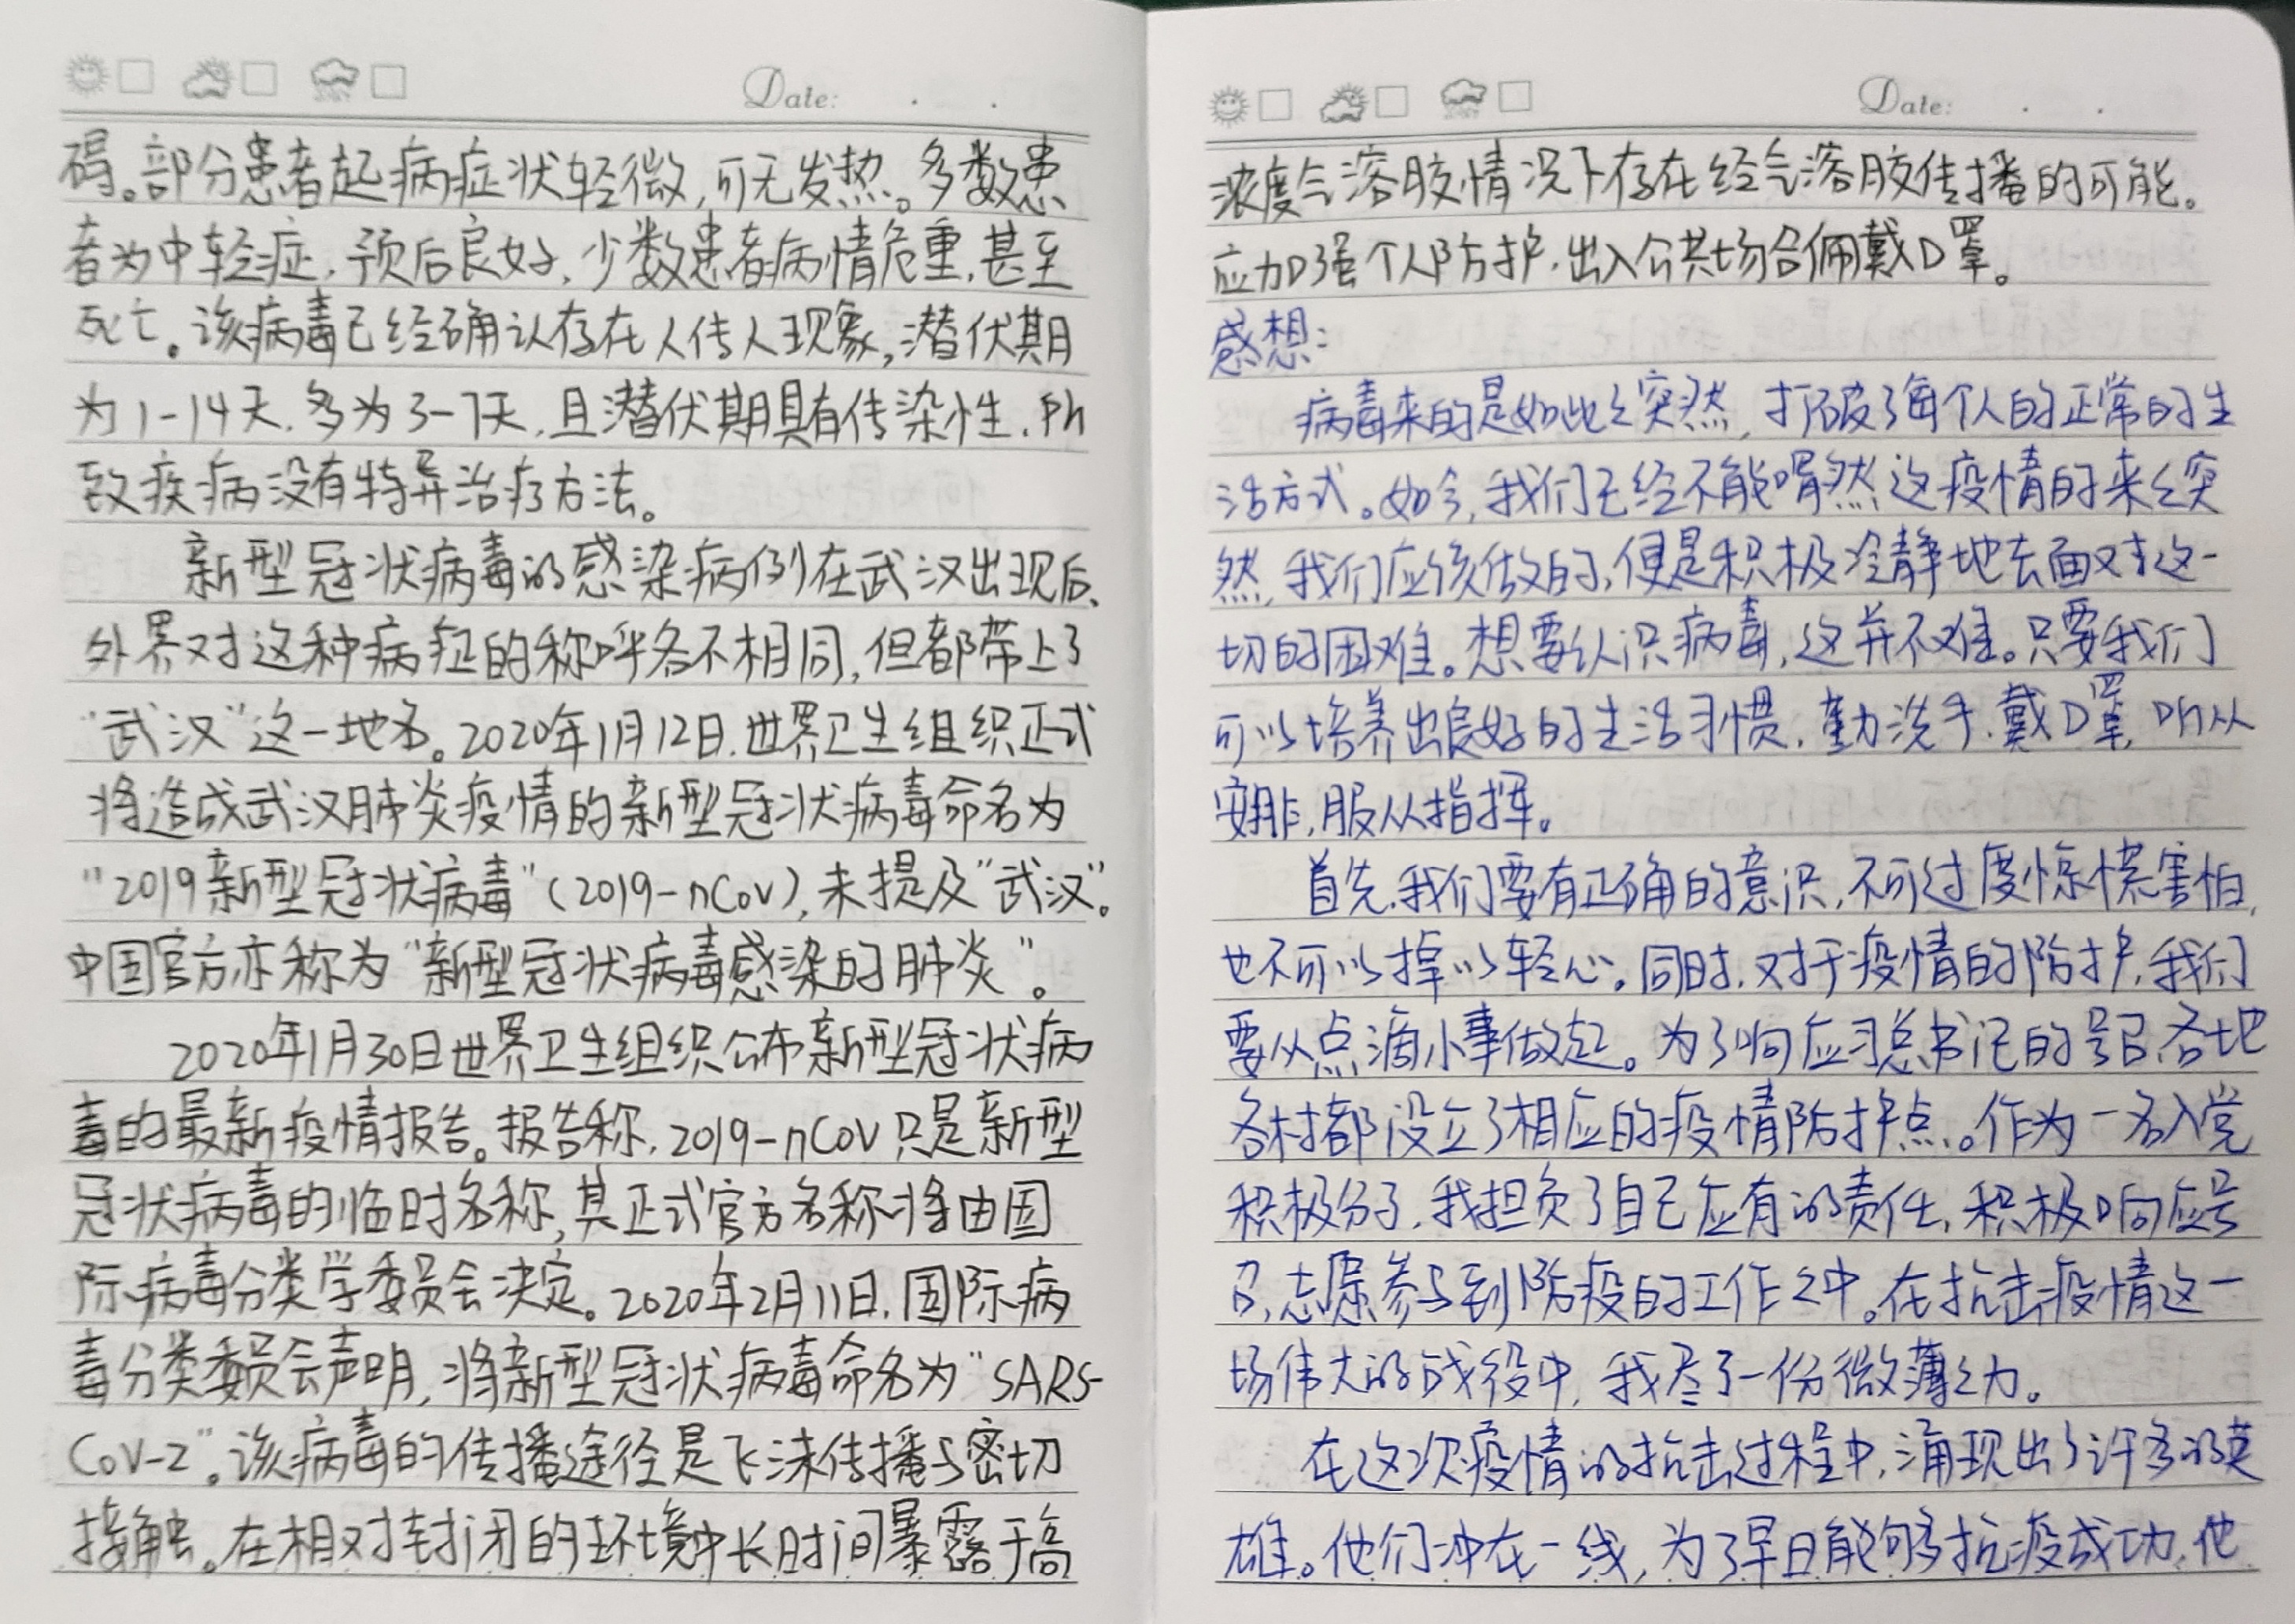 Date:
碍。部分患者起病症状轻微,可无发热。多数患
者为中轻症,预后良好,少数患者病情危重,甚至
死亡。该病毒已经确认存在人传人现象,潜伏期
为1-14天,多为3-7天,且潜伏期具有传染性,所
致疾病没有特异治疗方法。
新型冠状病毒的感染病例在武汉出现后,
外界对这种病症的称呼各不相同,但都带上了
"武汉"这一地名。2020年1月12日,世界卫生组织正式
将造成武汉肺炎疫情的新型冠状病毒命名为
"2019新型冠状病毒"(2019-nCoV),未提及"武汉"。
中国官方亦称为"新型冠状病毒感染的肺炎"。
2020年1月30日世界卫生组织公布新型冠状病
毒的最新疫情报告。报告称,2019-nCoV只是新型
冠状病毒的临时名称,其正式官方名称将由国
际病毒分类学委员会决定。2020年2月11日,国际病
毒分类委员会声明,将新型冠状病毒命名为"SARS-
CoV-2"。该病毒的传播途径是飞沫传播与密切
接触。在相对封闭的环境中长时间暴露于高
Date:
浓度气溶胶情况下存在经气溶胶传播的可能。
应加强个人防护,出入公共场合佩戴口罩。
感想:
病毒来的是如此之突然,打破了每个人的正常的生
活方式。如今,我们已经不能喟然这疫情的来之突
然,我们应该做的,便是积极冷静地去面对这一
切的困难。想要认识病毒,这并不难。只要我们
可以培养出良好的生活习惯,勤洗手,戴口罩,听从
安排,服从指挥。
首先,我们要有正确的意识,不可过度惊慌害怕,
也不可以掉以轻心。同时,对于疫情的防护,我们
要从点滴小事做起。为了响应习总书记的号召,各地
各村都设立了相应的疫情防护点。作为一名入党
积极分子,我担负了自己应有的责任,积极响应号
召,志愿参与到防疫的工作之中。在抗击疫情这一
场伟大的战役中,我尽了一份微薄之力。
在这次疫情的抗击过程中,涌现出了许多的英
雄。他们冲在一线,为了早日能够抗疫成功,他